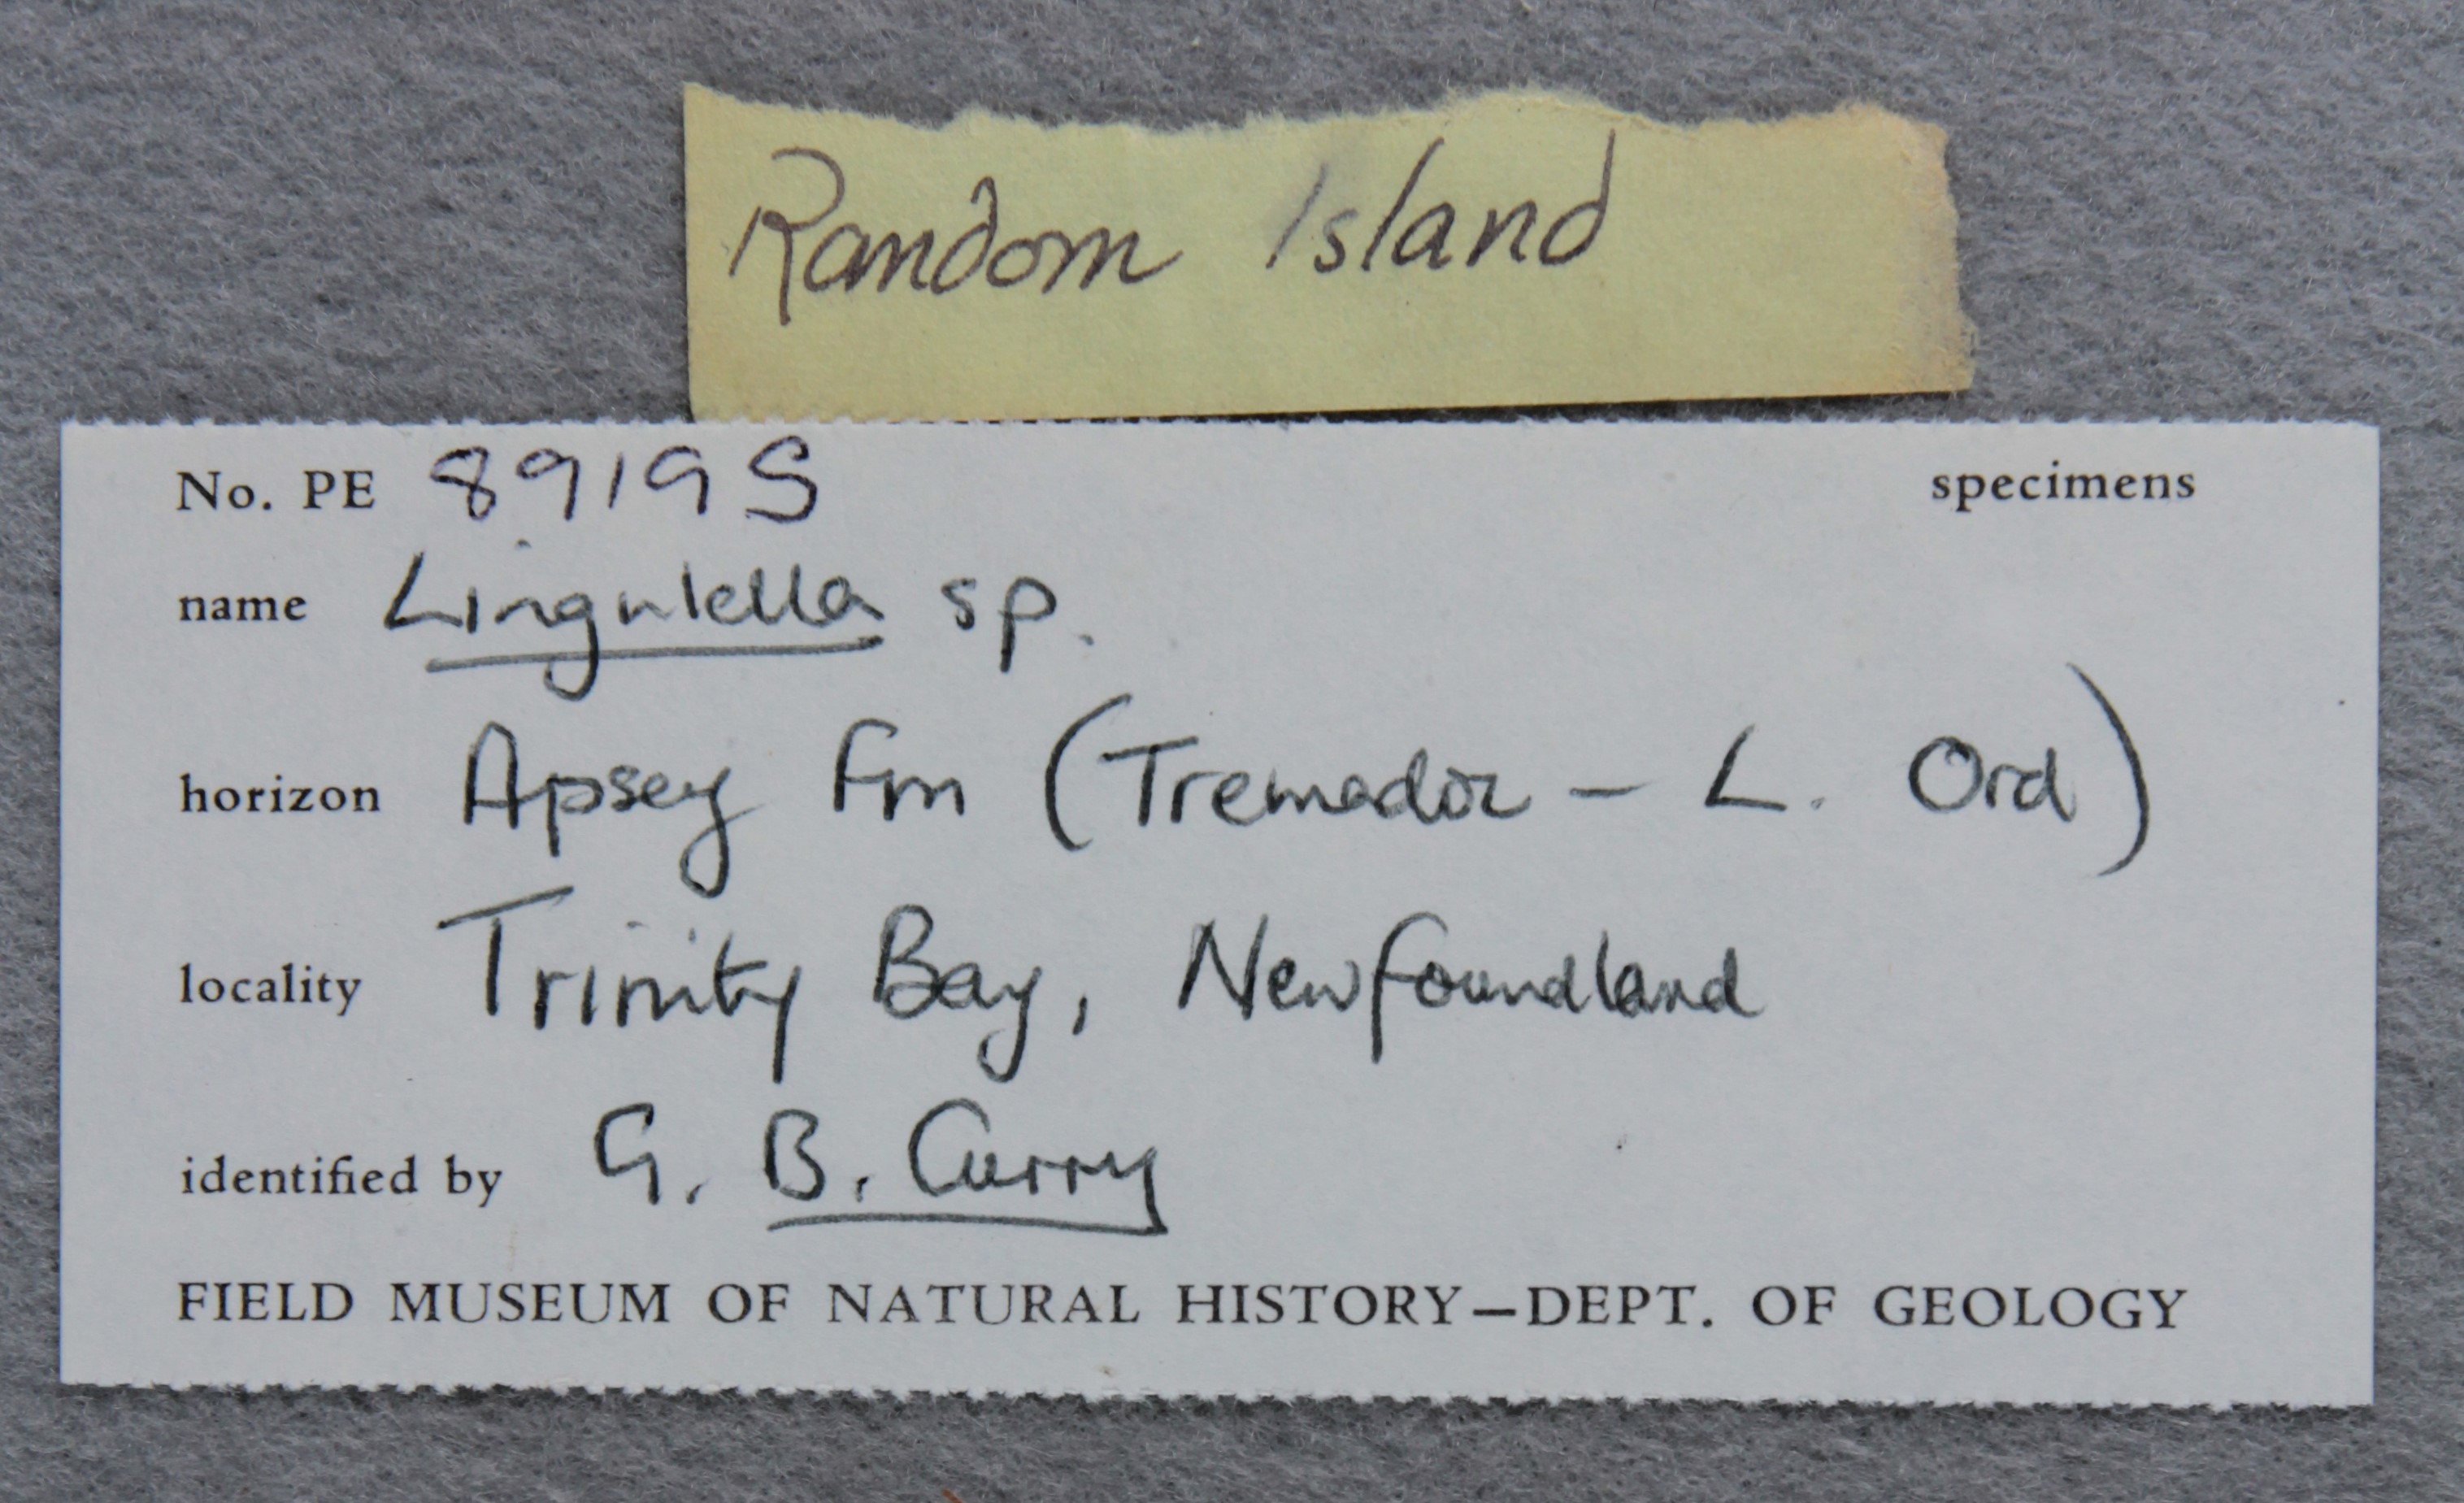 Random Island
No. PE 89195 specimens
name Lingulella sp.
horizon Apsey Fm (Tremadoc - L. Ord)
locality Trinity Bay, Newfoundland
identified by G. B. Curry
FIELD MUSEUM OF NATURAL HISTORY—DEPT. OF GEOLOGY